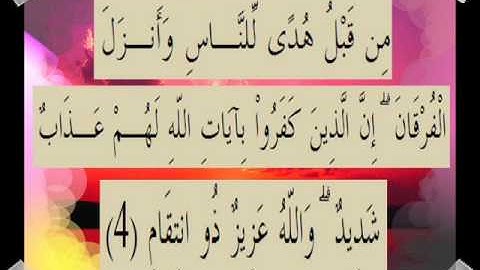 مِن قَبْلُ هُدًى لِّلنَّاسِ وَأَنزَلَ
الْفُرْقَانَ ۗ إِنَّ الَّذِينَ كَفَرُواْ بِآيَاتِ اللّهِ لَهُمْ عَذَابٌ
شَدِيدٌ ۗ وَاللّهُ عَزِيزٌ ذُو انتِقَامٍ (4)